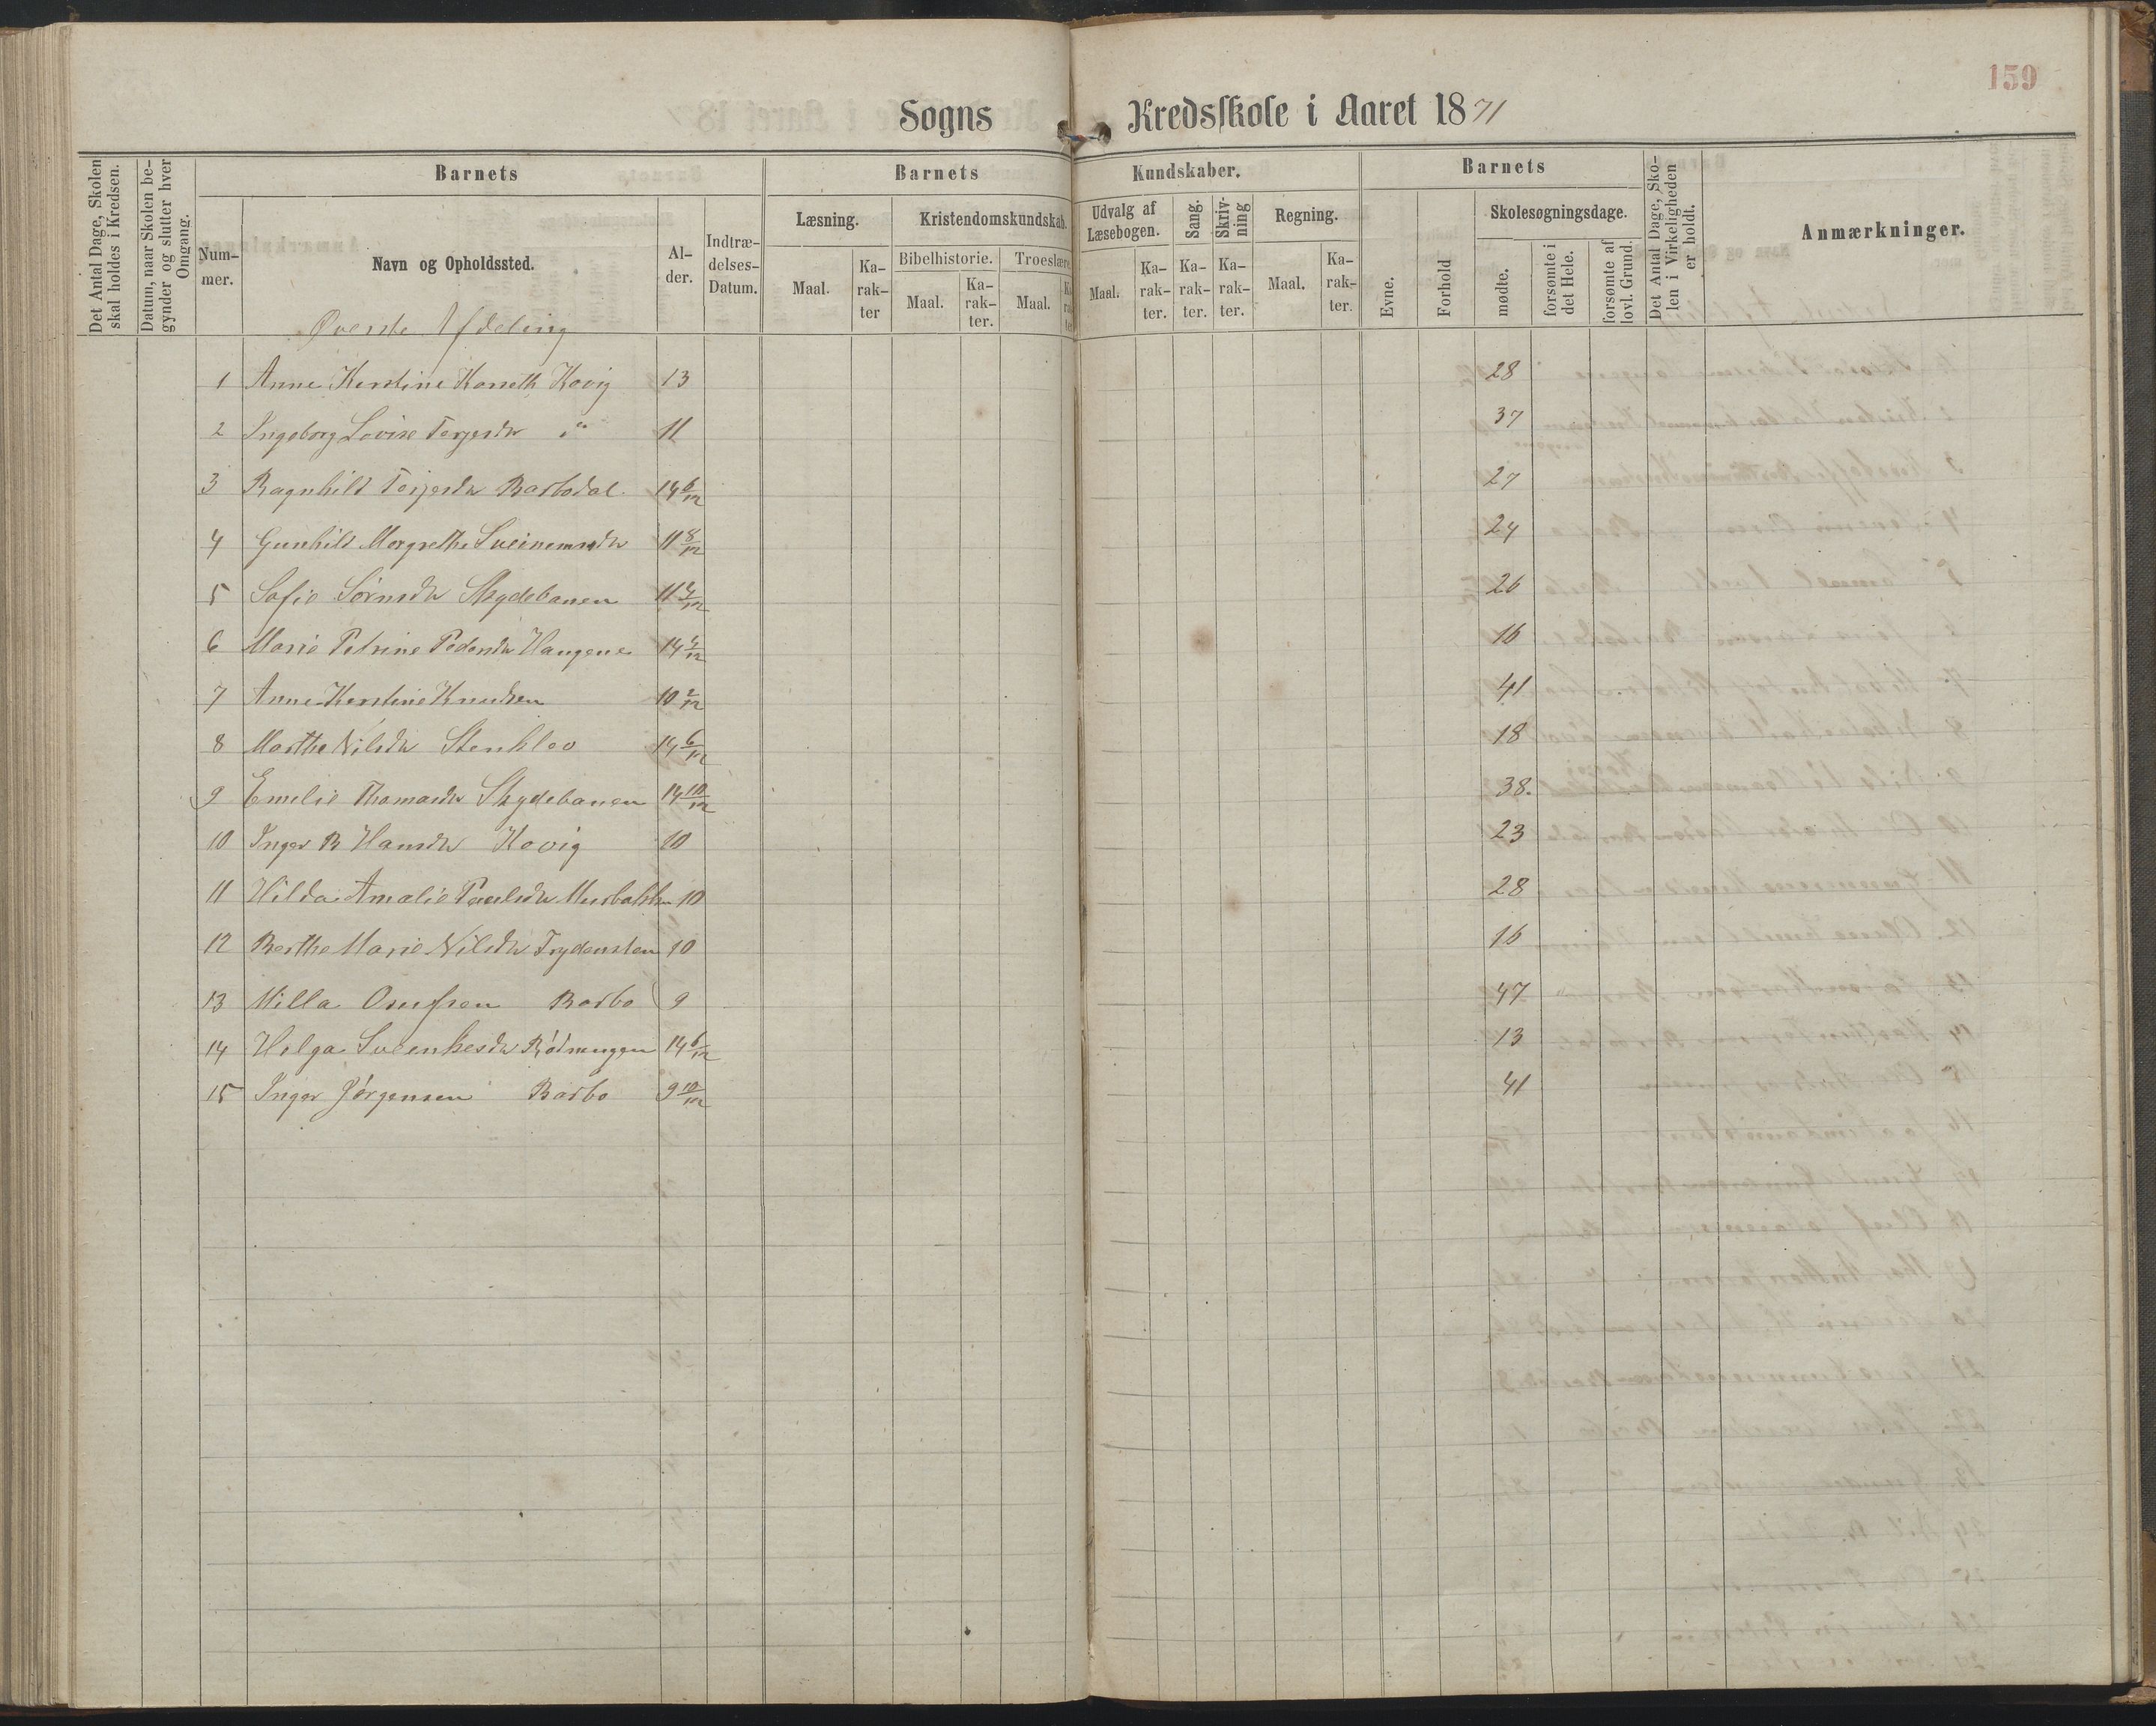 159
Sogns Kredsskole i Aaret 1871
Det Antal Dage, Skolen skal holdes i Kredsen.
Datum, naar Skolen begynder og slutter hver Omgang.
Barnets
Nummer.
Navn og Opholdssted.
Alder.
Indtrædelses-Datum.
Barnets Kundskaber.
Læsning.
Maal.
Karakter
Kristendomskundskab.
Bibelhistorie.
Maal.
Karakter.
Troeslære
Maal.
Udvalg af Læsebogen.
Maal.
Karakter.
Sang.
Karakter.
Skrivning
Karakter.
Regning.
Maal.
Karakter.
Barnets
Evne.
Forhold
Skolesøgningsdage.
mødte.
forsømte i det Hele.
forsømte af lovl. Grund.
Det Antal Dage, Skolen i Virkeligheden er holdt.
Anmærkninger.
Øverste Afdeling
1 Anne Kerstine Kovig 13 28
2 Ingeborg Lovise Terjesdtr " 11 37
3 Ragnhild Terjesdtr Barbodal 14 6/12 27
4 Gunhild Margrethe 11 8/12 24
5 Sofie Sørnsdtr Skydebanen 11 4/12 26
6 Marie Petrine Pedersdtr Haugene 14 4/12 16
7 Anne Kerstine Knudsen 10 2/12 41
8 Marthe Nilsdtr Stenklev 14 6/12 18
9 Emelie Thomasdtr Skydebanen 14 10/12 38.
10 Inger B Hansdtr Kovig 10 23
11 Hilda Amalie Paulsdtr 10 28
12 Berthe Marie Nilsdtr 10 16
13 Milla Barbo 9 47
14 Helga 14 6/12 13
15 Inger Jørgensen Barbo 9 10/12 41